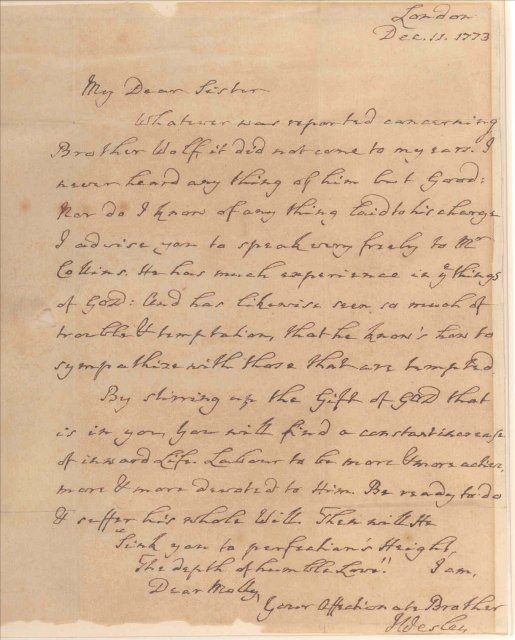 London
Dec. 11. 1773
My Dear Sister
Whatever was reported concerning
Brother Wolf, it did not come to my ears. I
never heard any thing of him but Good:
Nor do I know of any thing laid to his charge
I advise you to speak very freely to Mr
Collins. He has much experience in ye things
of GOD: And has likewise seen so much of
trouble & temptation, that he know's how to
sympathize with those that are tempted
By stirring up the Gift of GOD that
is in you, you will find a constant increase
of inward Life. Labour to be more & more active,
more & more devoted to Him. Be ready to do
& suffer his whole Will. Then will He
"Sink you to perfection's Height,
The depth of humble Love!" I am,
Dear Molly
Your Affectionate Brother
JWesley